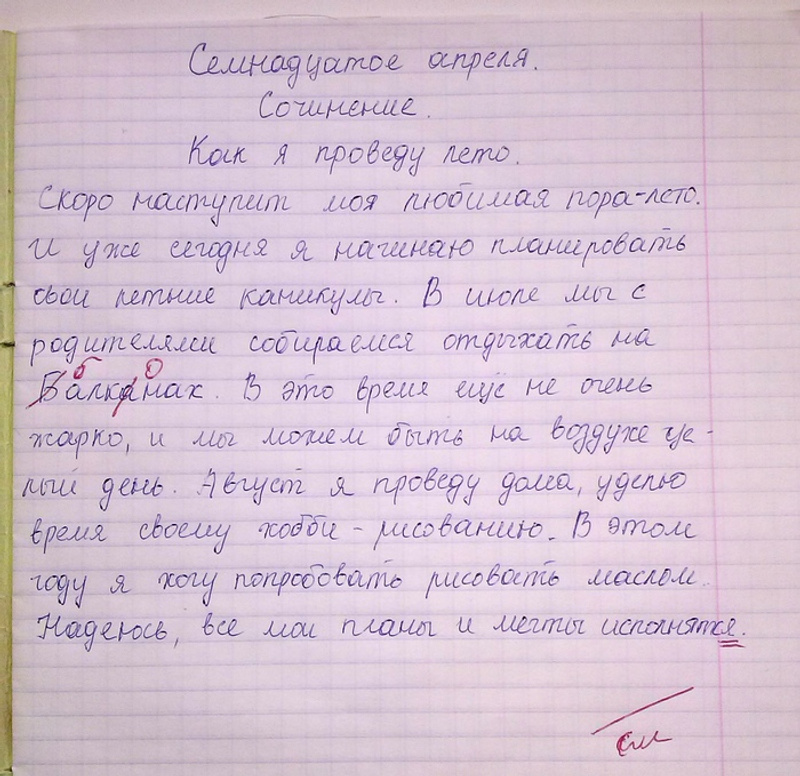 Семнадцатое апреля.
Сочинение.
Как я проведу лето.
Скоро наступит моя любимая пора-лето.
И уже сегодня я начинаю планировать
свои летние каникулы. В июле мы с
родителями собираемся отдыхать на
б о
Балканах. В это время ещё не очень
жарко, и мы можем быть на воздухе це-
лый день. Август я проведу дома, уделю
время своему хобби - рисованию. В этом
году я хочу попробовать рисовать маслом.
Надеюсь, все мои планы и мечты исполнятся.
См